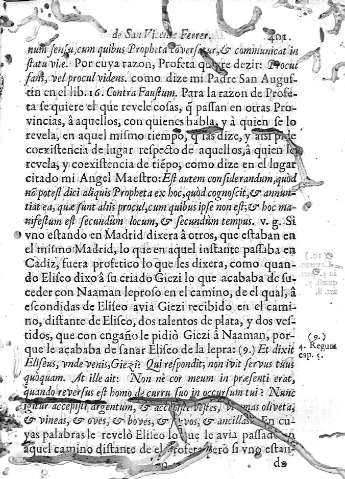 de San Vicente Ferrer. 401.
num sensu, cum quibus Propheta cōversatur, & communicat in
statu viæ. Por cuya razon, Profeta quiere dezir: Procul
fans, vel procul videns. como dize mi Padre San Augus-
tin en el lib. 16. Contra Faustum. Para la razon de Profe-
ta se quiere el que revele cosas, q̄ passan en otras Pro-
vincias, à aquellos, con quienes habla, y à quien se lo
revela, en aquel mismo tiempo, q̄ las dize, y assi pide
coexistencia de lugar respecto de aquellos, à quien le
revela, y coexistencia de tiēpo, como dize en el lugar
citado mi Angel Maestro: Est autem considerandum, quòd
nō potest dici aliquis Propheta ex hoc, quòd cognoscit, & annun-
tiat ea, quæ sunt aliis procul, cum quibus ipse non est; & hoc ma-
nifestum est secundùm locum, & secundùm tempus. v. g. Si
vno estando en Madrid dixera à otros, que estaban en
el mismo Madrid, lo que en aquel instante passaba en
Cadiz, fuera profetico lo que les dixera, como quan-
do Eliseo dixo à su criado Giezi lo que acababa de su-
ceder con Naaman leproso en el camino, de el qual, à
escondidas de Eliseo avia Giezi recibido en el cami-
no, distante de Eliseo, dos talentos de plata, y dos ves-
tidos, que con engaño le pidiò Giezi à Naaman, por-
que le acababa de sanar Eliseo de la lepra: (9.) Et dixit
Eliseus, unde venis, Giezi? Qui respondit, non ivit servus tuus
quòquam. At ille ait: Non nè cor meum in præsenti erat,
quando reversus est homo de curru suo in occursum tui? Nunc
igitur accepisti argentum, & accepisti vestes, ut emas oliveta,
& vineas, & oves, & boves, & servos, & ancillas. En cu-
yas palabras le revelò Eliseo lo que le avia passado en
aquel camino distante de el Profeta, pero si vno estan-
do
(9.)
4. Regum
cap. 5.